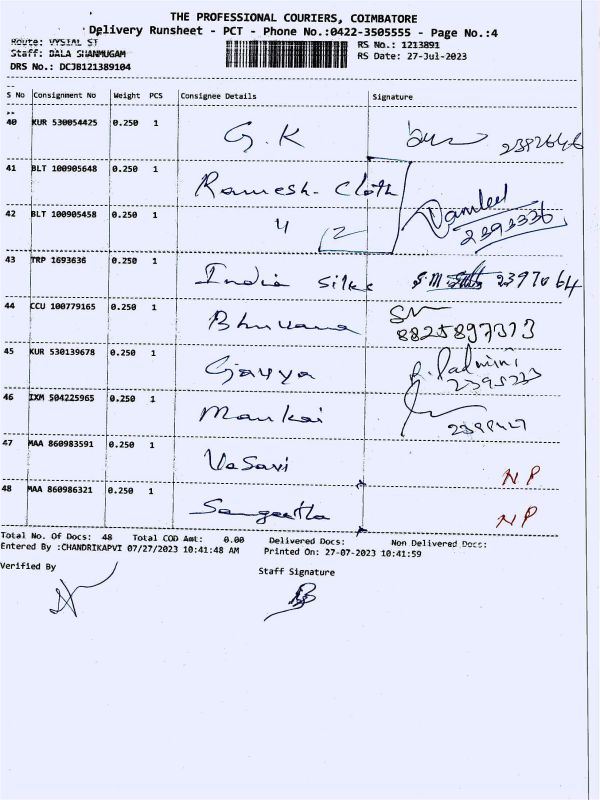 THE PROFESSIONAL COURIERS, COIMBATORE
Delivery Runsheet - PCT - Phone No.:0422-3505555 - Page No.:4
Route: VYSIAL ST
RS No.: 1213891
Staff: BALA SHANMUGAM
RS Date: 27-Jul-2023
DRS No.: DCJB121389104
S No Consignment No Weight PCS Consignee Details Signature
40 KUR 530054425 0.250 1 G.K 2382646
41 BLT 100905648 0.250 1 Ramesh. Cloth
42 BLT 100905458 0.250 1 4 2 2393336
43 TRP 1693636 0.250 1 India Silks S.M 2397064
44 CCU 100779165 0.250 1 Bhuvana 8825897373
45 KUR 530139678 0.250 1 Gayya R. Padmini 2395233
46 IXM 504225965 0.250 1 Mankai
47 MAA 860983591 0.250 1 Vasavi NP
48 MAA 860986321 0.250 1 Sangeetha NP
Total No. Of Docs: 48 Total COD Amt: 0.00 Delivered Docs: Non Delivered Docs:
Entered By :CHANDRIKAPVI 07/27/2023 10:41:48 AM Printed On: 27-07-2023 10:41:59
Verified By
Staff Signature